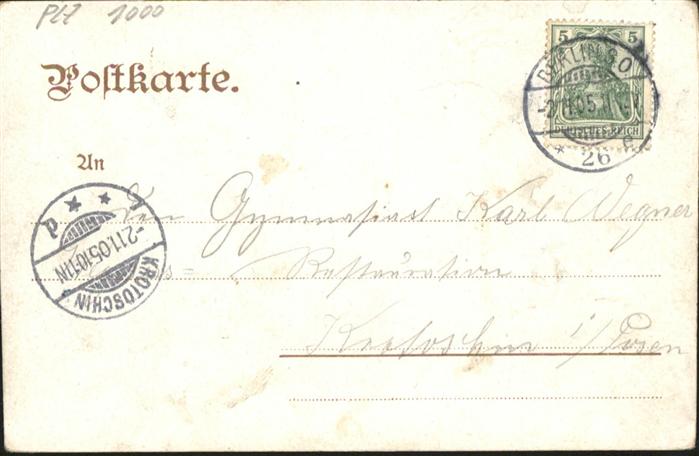 PLZ 1000
Postkarte.
5 5
DEUTSCHES REICH
BERLIN S.O.
-2.11.05.
* 26 e
An
Den Gymnasiast Karl Wegner
Restauration
Krotoschin i/Posen
-2.11.05.10-11N
KROTOSCHIN